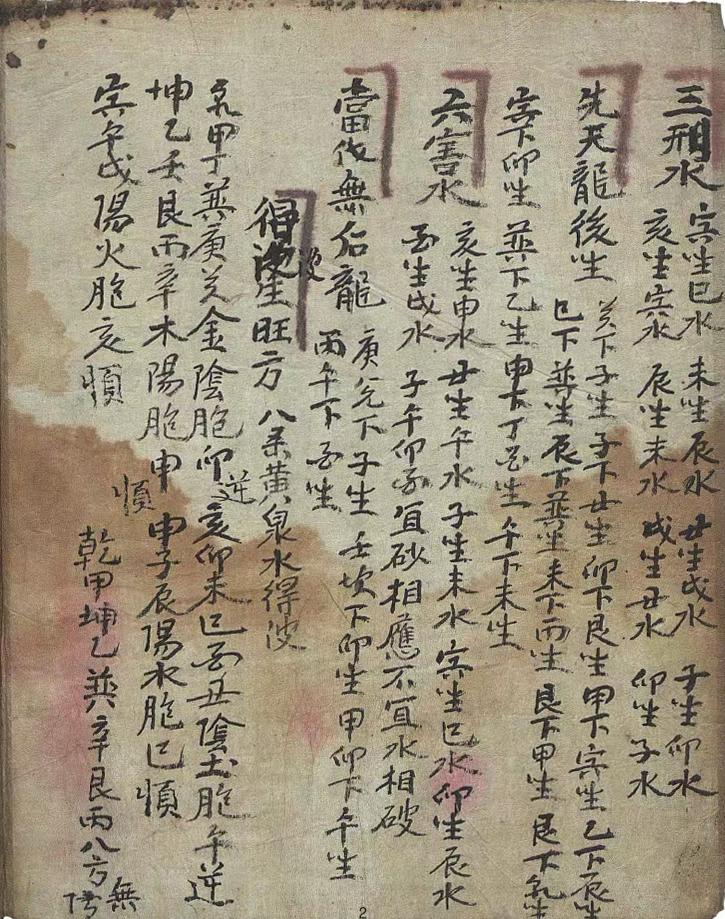 三刑水 寅坐巳水 未坐辰水 丑坐戌水 子坐卯水
亥坐寅水 辰坐未水 戌坐丑水 卯坐子水
先天龍後坐 癸下子坐 子下丑坐 卯下艮坐 甲下寅坐 乙下辰坐
巳下巽坐 辰下巽坐 未下丙坐 艮下甲坐 艮下乾坐
寅下卯坐 巽下乙坐 申下丁酉坐 午下未坐
六害水 亥坐申水 丑坐午水 子坐未水 寅坐巳水 卯坐辰水
酉坐戌水 子午卯酉宜砂相應不宜水相破
當代無后龍 庚兌下子坐 壬坎下卯坐 甲卯下午坐
丙午下酉坐
得波生旺方 八条黃泉水得波
乾甲丁巽庚癸金陰胞卯逆 亥卯未巳酉丑陰土胞午逆
坤乙壬艮丙辛木陽胞申順 申子辰陽水胞巳順
寅午戌陽火胞亥順 乾甲坤乙巽辛艮丙八方無
2